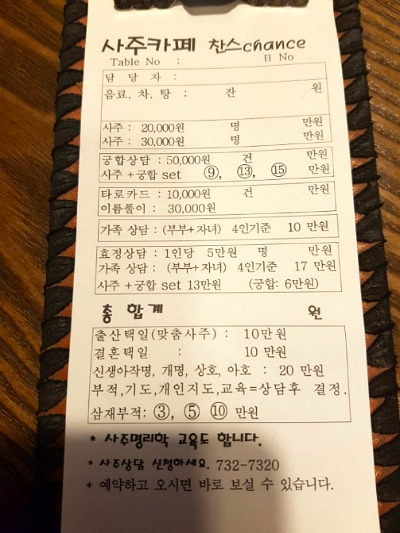 사주카페 찬스chance
Table No : 日 No
담 당 자 :
음료. 차. 탕 : 잔 원
사주 : 20,000원 명 만원
사주 : 30,000원 명 만원
궁합상담 : 50,000원 건 만원
사주 + 궁합 set ⑨, ⑬, ⑮ 만원
타로카드 : 10,000원 건 만원
이름풀이 : 30,000원
가족 상담 : (부부+자녀) 4인기준 10 만원
효정상담 : 1인당 5만원 명 만원
가족 상담 : (부부+자녀) 4인기준 17 만원
사주 + 궁합 set 13만원 (궁합: 6만원)
총 합 계 원
출산택일(맞춤사주) : 10만원
결혼택일 : 10 만원
신생아작명, 개명, 상호, 아호 : 20 만원
부적,기도,개인지도,교육=상담후 결정.
삼재부적: ③, ⑤ ⑩ 만원
* 사주명리학 교육도 합니다.
* 사주상담 신청하세요. 732-7320
* 예약하고 오시면 바로 보실 수 있습니다.